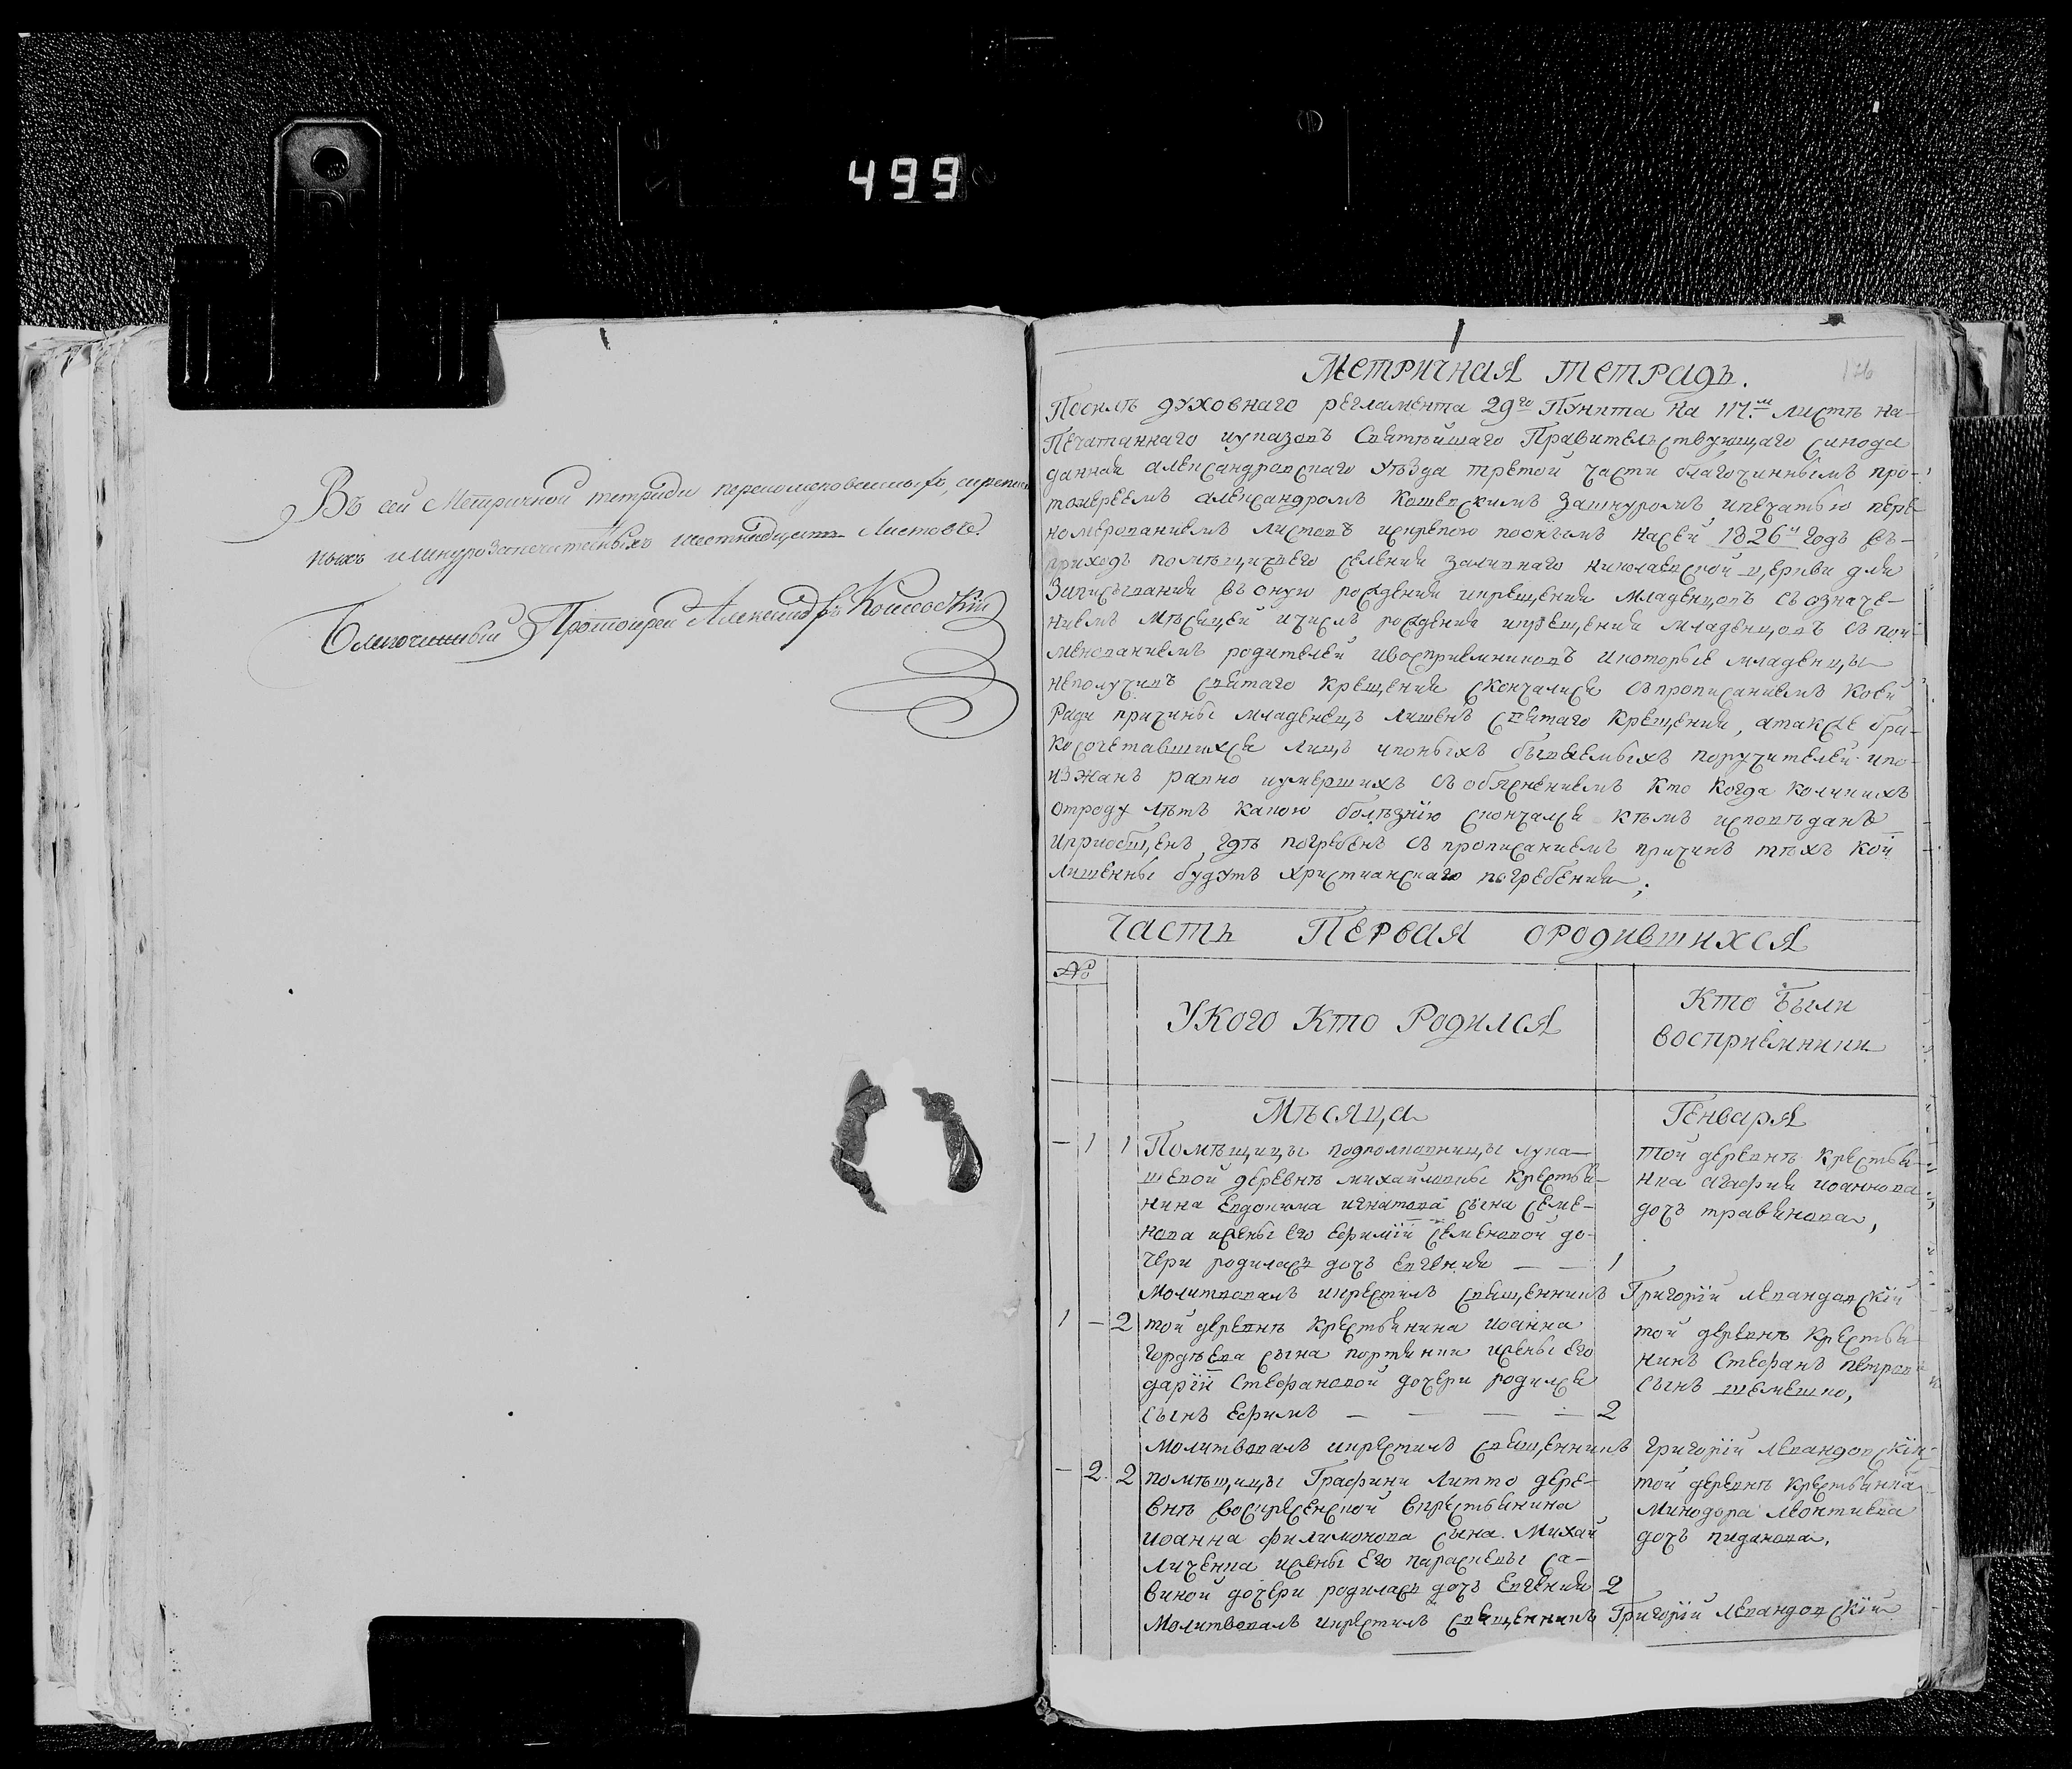 499
Въ сей Метричной тетради перенумерованныхъ, скрепле
ныхъ и шнурозапечатанныхъ шестнадцать Листовъ.
Благочинный Протоиерей Александръ Кошевскій
Метричная тетрадь.
Посилѣ духовнаго регламента 29го Пункта на 117м листѣ на-
Печатаннаго иуказовъ Святѣйшаго Правительствующаго Синода
данная александровскаго уѣзда третой части благочиннымъ про-
тоиереемъ александромъ Кошевскимъ зашнуромъ ипечатью пере
номерованиемъ листовъ искрепою посихъ насей 1826й годъ въ-
приходъ помѣщичьего селения заливнаго николаевской церкви для
Записывания въ оную рождения икрещения младенцовъ съ означе-
ниемъ мѣсяцей ичислъ рождения икрещения младенцовъ съ пои-
менованиемъ родителей ивосприемниковъ икоторые младенцы
неполучивъ святаго крещения скончалися съпрописаниемъ коей
Ради причины младенецъ лишенъ святаго крещения, атакже бра-
косочетавшихся лицъ ипоныхъ бываемыхъ поручителей ипо-
изжанъ равно иумершихъ съ обясненнемъ кто когда коликихъ
отроду лѣтъ какою болѣзнію скончался кѣмъ исповѣданъ
иприобщенъ гдѣ погребенъ съ прописаниемъ причинъ тѣхъ кои
лишенны будутъ христианскаго погребения;
часть Первая ородившихся
№
Укого Кто Родился
Кто были
восприемники
Мѣсяца
Генваря
1 1 Помѣщицы подполковницы лука-
шевой деревнѣ михайловны крестья-
нина Евдокима игнатова сына семе-
нова ижены его ефимїи семеновой до-
чери родилась дочь евгения — — 1
той деревнѣ крестья-
нка агафия иоаннова
дочь травянова,
Молитвовалъ икрестилъ священникъ Григорїй левандовскїй
1 — 2 той деревнѣ крестьянина иоанна
гордѣева сына портянки ижены его
дарїи Стефановой дочери родился
сынъ ефимъ — — — — 2
той деревнѣ крестья-
нинъ Стефанъ петровъ
сынъ шемешко,
Молитвовалъ икрестилъ священникъ григорїй левандовскїй
— 2 2 помѣщицы Графини Литто дере-
внѣ воскресенской крестьянина
иоанна филимонова сына Михай
личенка ижены его параскевы са-
виной дочери родилась дочь евгения 2
той деревнѣ крестьянка
Минодора леонтиева
дочь пиданова.
Молитвовалъ икрестилъ священникъ Григорїй левандовскїй